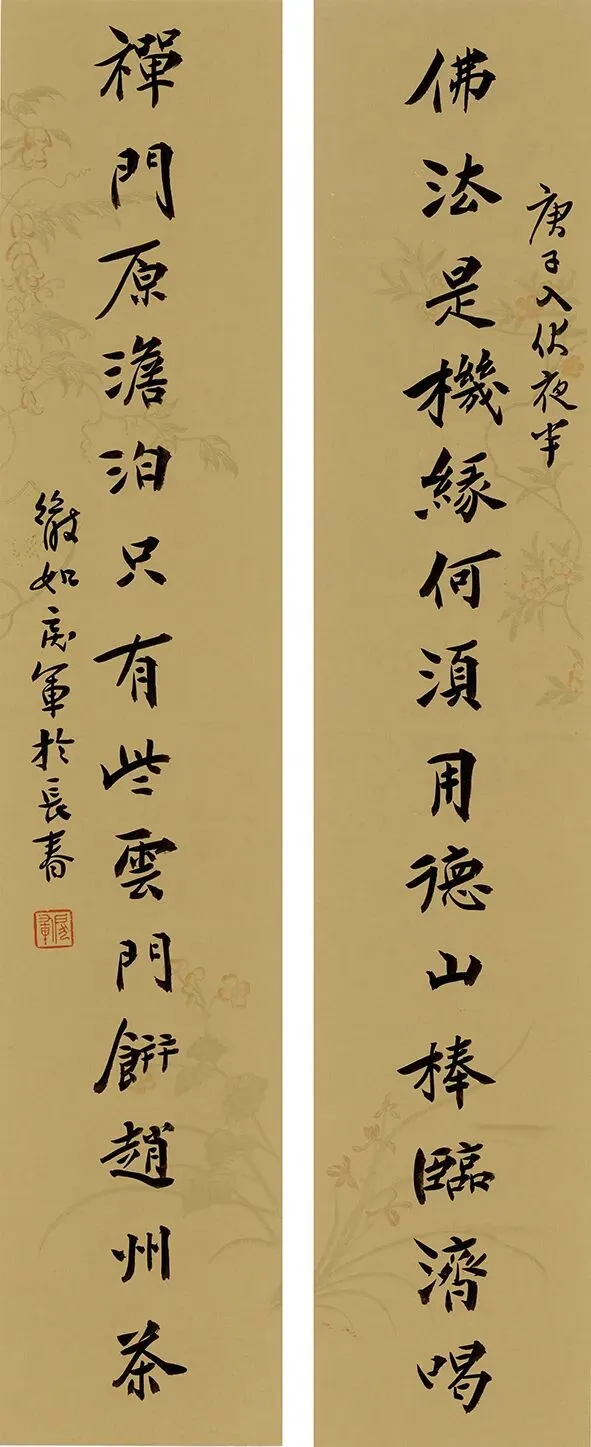 佛法是機緣何須用德山棒臨濟喝
庚子入伏夜半
禪門原澹泊只有些雲門餅趙州茶
徹如成軍於長春